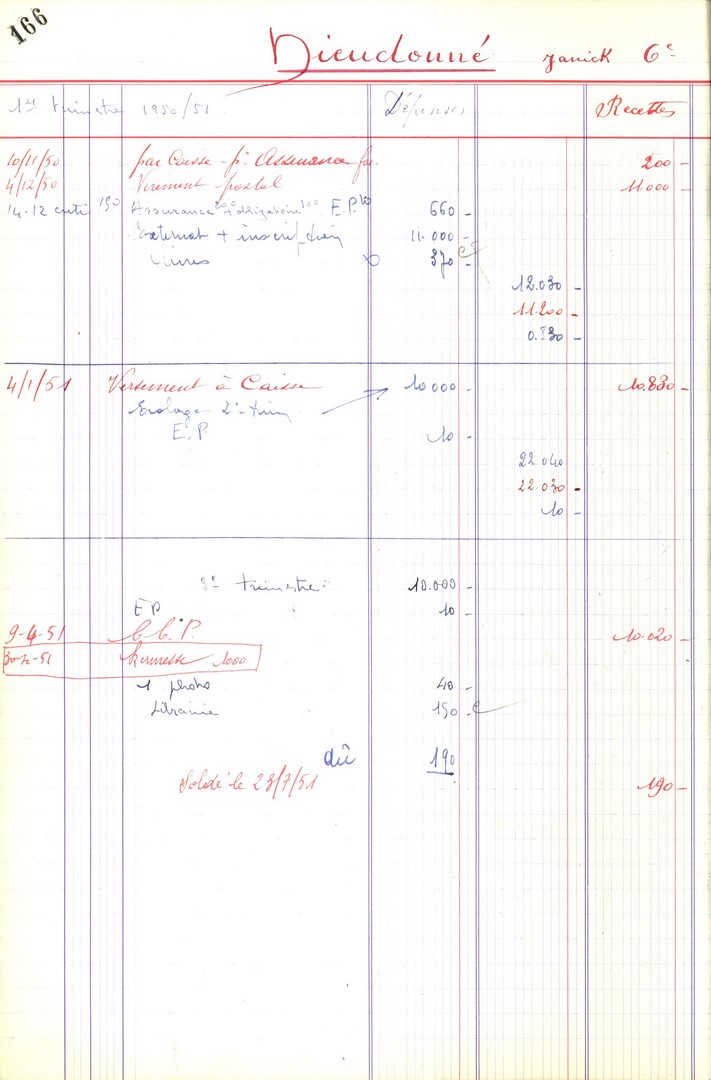 166
Dieudonné Janick 6e
1er trimestre 1950/51 Dépenses Recettes
10/11/50 par Caisse - pr Assurance 200 -
4/12/50 Virement postal 11.000 -
14.12 cuti 150 Assurance 200 + obligatoire 300 E.P. 10 660 -
Externat + inscript. 11.000 -
Livres 370 -
12.030 -
11.200 -
0.830 -
4/1/51 Versement à Caisse 10.000 - 10.830 -
Ecolage 2e trim
E.P. 10 -
22.040
22.030 -
10 -
3e trimestre 10.000 -
EP 10 -
9-4-51 C.C.P. 10.020 -
Kermesse 1000
1 photo 40 -
Librairie 150 -
dû 190
Soldé le 23/7/51 190 -